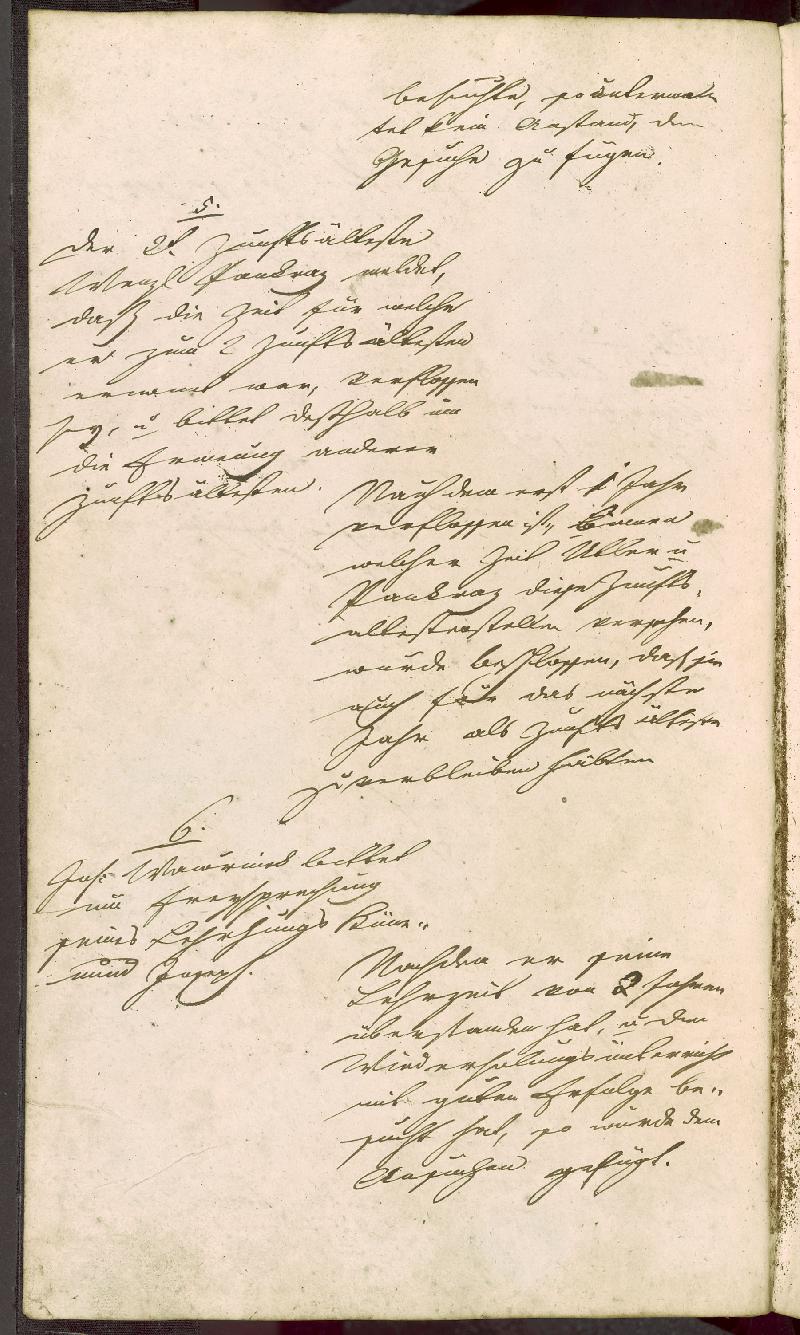 besuchte, so unterwal-
tet kein Anstand, dem
Gesuche zu fügen.
5.
Der 2t. Zunftsälteste
Wenzl Pankraz meldet,
daß die Zeit für welche
er zum 2 Zunftsältesten
ernannt war, verflossen
sey, u bittet deßhalb um
die Ernenung anderer
Zunftsältesten.
Nachdem erst 1 Jahr
verflossen ist, binnen
welcher Zeit Uller u
Pankraz diese Zunfts-
ältestenstellen versehen,
wurde beschlossen, daß sie
auch für das nächste
Jahr als Zunftsälteste
zu verbleiben hätten
6.
Jos: Wawrinek bittet
um Freysprechung
seines Lehrjungs
Joseph.
Nachdem er seine
Lehrzeit von 2 Jahren
überstanden hat, u den
Wiederholungsunterricht
mit guten Erfolge be-
sucht hat, so wurde dem
Ansuchen gefügt.